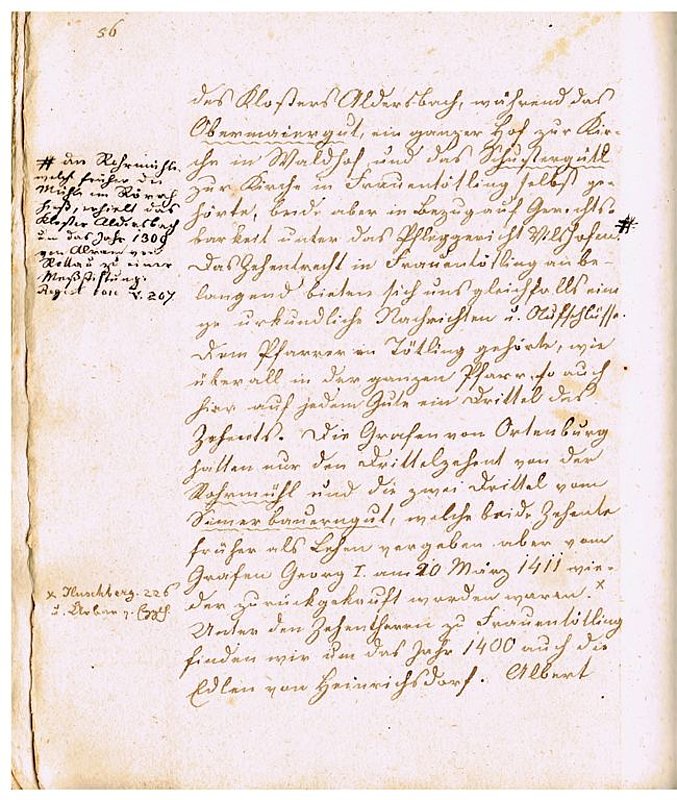 56
des Klosters Aldersbach, während das
Obermaiergut, ein ganzer Hof zur Kir-
che in Waldhof, und das Schustergütl
zur Kirche in Frauentötling selbst ge-
hörte, beide aber in Bezug auf Gerichts-
barkeit unter das Pfleggericht Vilshofen. #
Das Zehentrecht in Frauentötling anbe-
langend bieten sich uns gleichfalls eini
ge urkundliche Nachrichten u. Aufschlüsse.
Dem Pfarrer in Tötling gehörte, wie
überall in der ganzen Pfarr, so auch
hier auf jedem Gute ein Drittel des
Zehents. Die Grafen von Ortenburg
hatten nur den Drittelzehent von der
Rohrmühl und die zwei Drittel vom
Simerbauerngut, welche beide Zehente
früher als Lehen vergeben aber vom
Grafen Georg I. am 20 März 1411 wie-
der zurückgekauft worden waren. x
Unter den Zehentherrn zu Frauentötling
finden wir um das Jahr 1400 auch die
Edlen von Heinrichsdorf. Albert
# die Rohrmühle,
welche früher die
Mühle im Rörach
hieß, erhielt das
Kloster Aldersbach
um das Jahr 1309
von Alram von
Rottau zu einer
Meßstiftung.
V. 207
x Huschberg. 226
u. Urbar